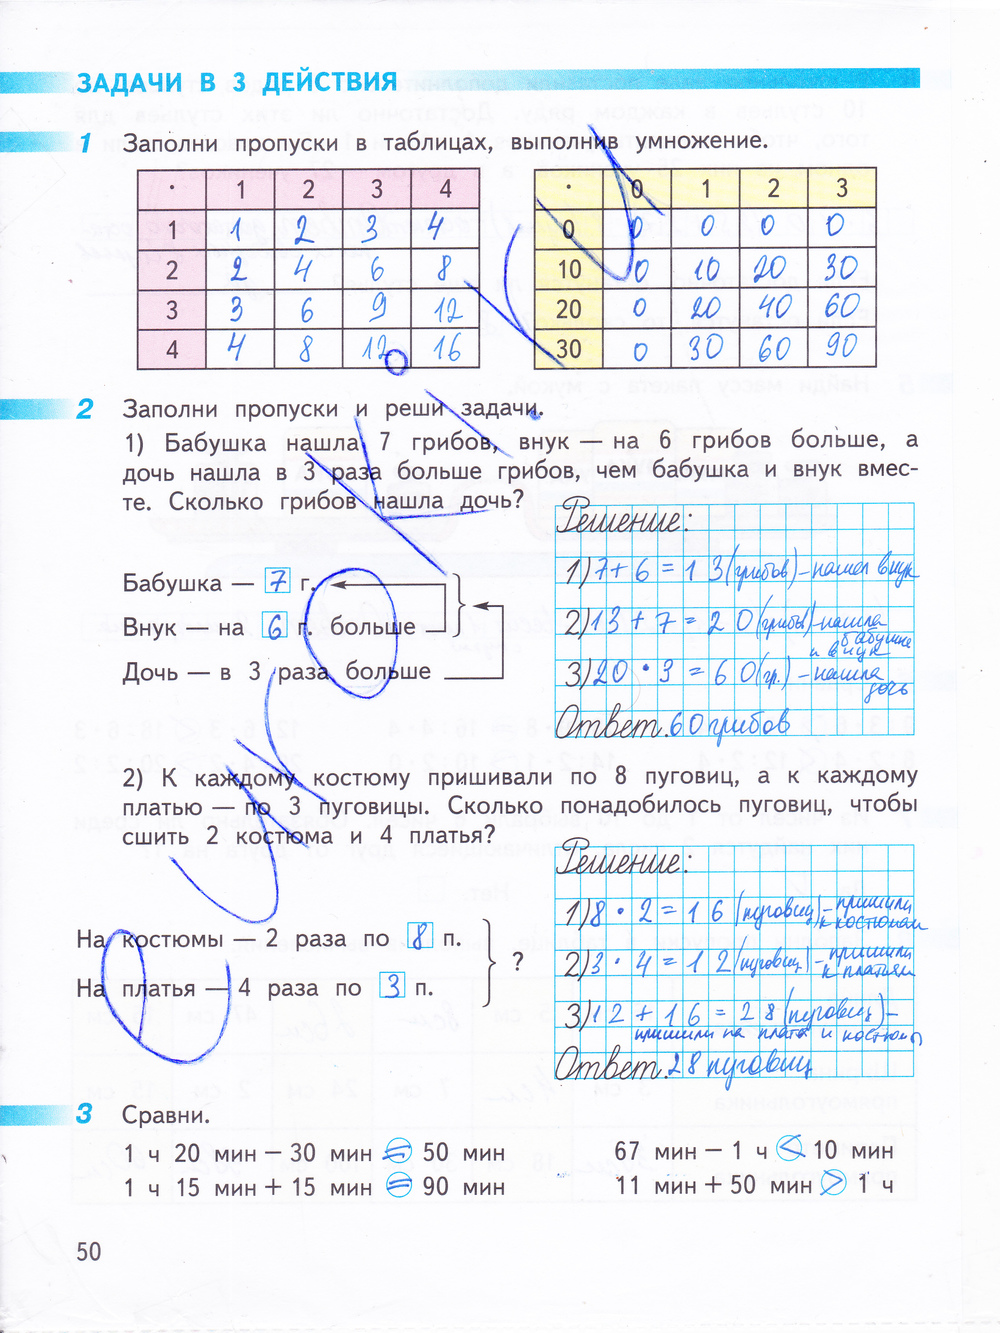 ЗАДАЧИ В 3 ДЕЙСТВИЯ
1 Заполни пропуски в таблицах, выполнив умножение.
· 1 2 3 4
1 1 2 3 4
2 2 4 6 8
3 3 6 9 12
4 4 8 12 16
· 0 1 2 3
0 0 0 0 0
10 0 10 20 30
20 0 20 40 60
30 0 30 60 90
2 Заполни пропуски и реши задачи.
1) Бабушка нашла 7 грибов, внук — на 6 грибов больше, а
дочь нашла в 3 раза больше грибов, чем бабушка и внук вмес-
те. Сколько грибов нашла дочь?
Бабушка — 7 г.
Внук — на 6 г. больше
Дочь — в 3 раза больше
Решение:
1) 7 + 6 = 13 (грибов) – нашел внук
2) 13 + 7 = 20 (грибов) – нашла
бабушка
и внук
3) 20 · 3 = 60 (гр.) – нашла
дочь
Ответ. 60 грибов
2) К каждому костюму пришивали по 8 пуговиц, а к каждому
платью — по 3 пуговицы. Сколько понадобилось пуговиц, чтобы
сшить 2 костюма и 4 платья?
На костюмы — 2 раза по 8 п.
На платья — 4 раза по 3 п.
?
Решение:
1) 8 · 2 = 16 (пуговиц) – пришили
к костюмам
2) 3 · 4 = 12 (пуговиц) – пришили
к платьям
3) 12 + 16 = 28 (пуговиц) –
пришили на плата и костюмы
Ответ. 28 пуговиц
3 Сравни.
1 ч 20 мин − 30 мин = 50 мин
1 ч 15 мин + 15 мин = 90 мин
67 мин − 1 ч < 10 мин
11 мин + 50 мин > 1 ч
50